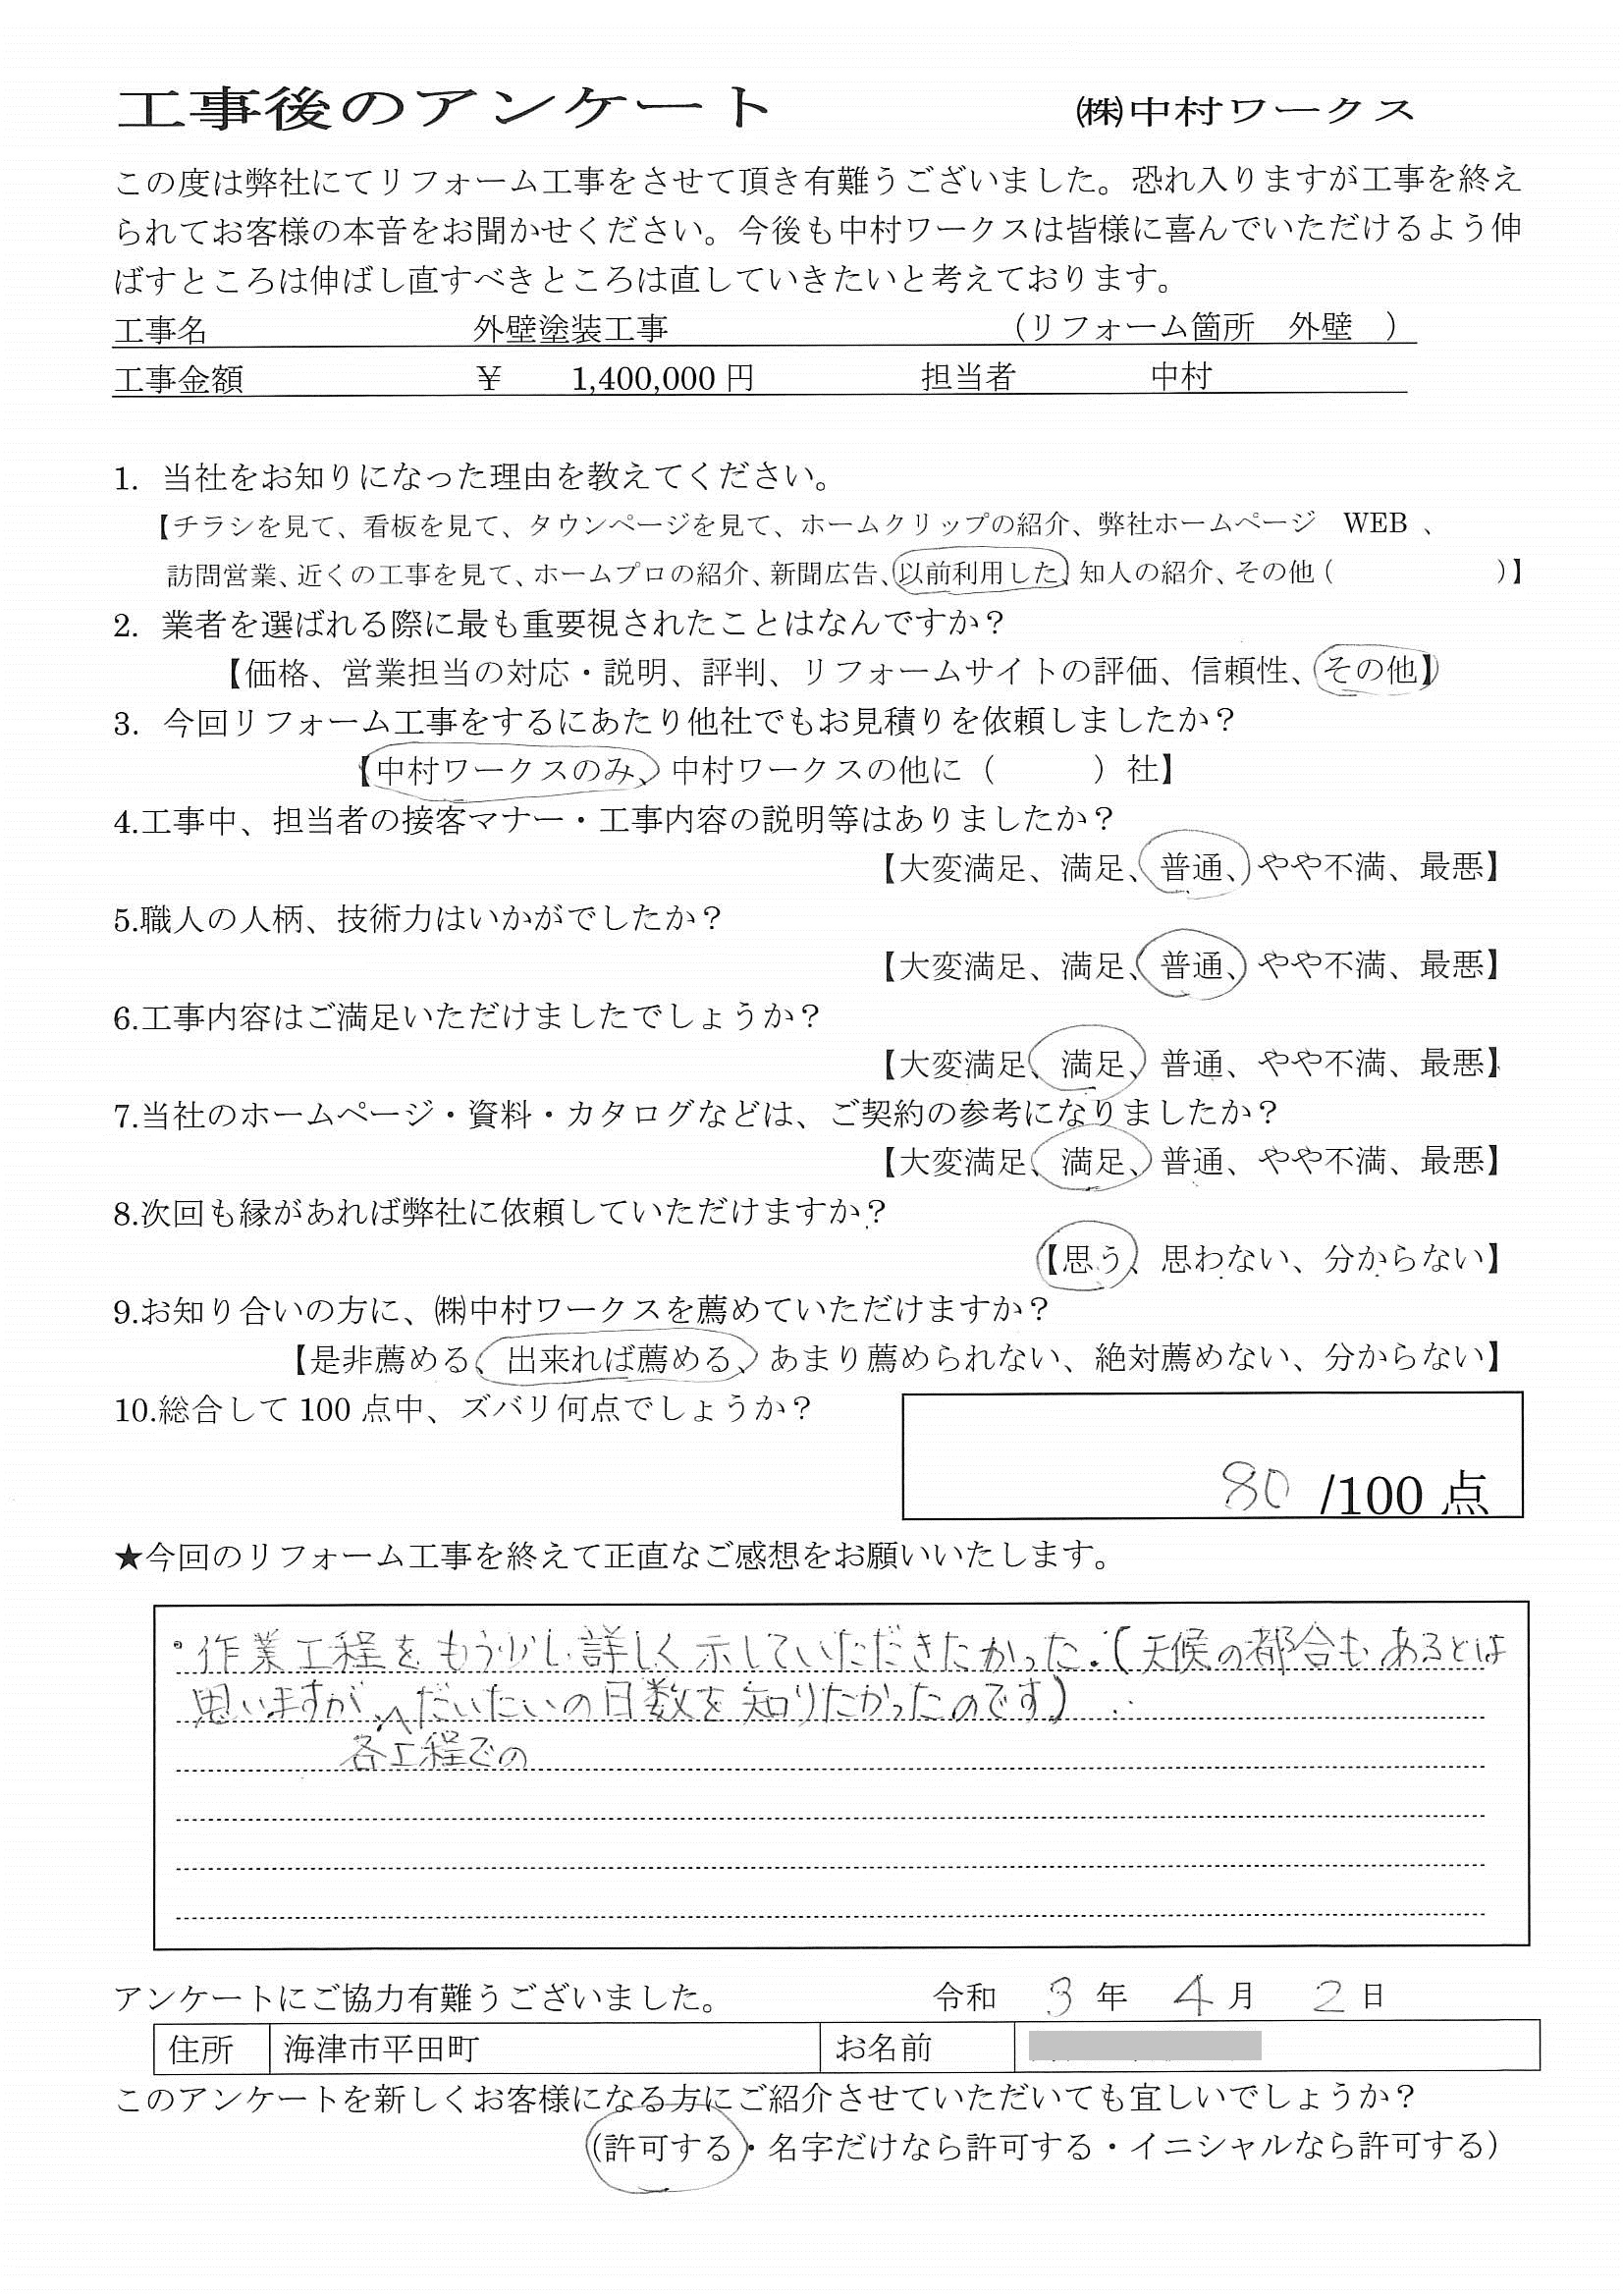 工事後のアンケート ㈱中村ワークス
この度は弊社にてリフォーム工事をさせて頂き有難うございました。恐れ入りますが工事を終え
られてお客様の本音をお聞かせください。今後も中村ワークスは皆様に喜んでいただけるよう伸
ばすところは伸ばし直すべきところは直していきたいと考えております。
工事名 外壁塗装工事 （リフォーム箇所 外壁 ）
工事金額 ￥ 1,400,000 円 担当者 中村
1. 当社をお知りになった理由を教えてください。
【チラシを見て、看板を見て、タウンページを見て、ホームクリップの紹介、弊社ホームページ WEB 、
訪問営業、近くの工事を見て、ホームプロの紹介、新聞広告、以前利用した、知人の紹介、その他（ ）】
2. 業者を選ばれる際に最も重要視されたことはなんですか？
【価格、営業担当の対応・説明、評判、リフォームサイトの評価、信頼性、その他】
3. 今回リフォーム工事をするにあたり他社でもお見積りを依頼しましたか？
【中村ワークスのみ、中村ワークスの他に（ ）社】
4.工事中、担当者の接客マナー・工事内容の説明等はありましたか？
【大変満足、満足、普通、やや不満、最悪】
5.職人の人柄、技術力はいかがでしたか？
【大変満足、満足、普通、やや不満、最悪】
6.工事内容はご満足いただけましたでしょうか？
【大変満足、満足、普通、やや不満、最悪】
7.当社のホームページ・資料・カタログなどは、ご契約の参考になりましたか？
【大変満足、満足、普通、やや不満、最悪】
8.次回も縁があれば弊社に依頼していただけますか？
【思う、思わない、分からない】
9.お知り合いの方に、㈱中村ワークスを薦めていただけますか？
【是非薦める、出来れば薦める、あまり薦められない、絶対薦めない、分からない】
10.総合して 100 点中、ズバリ何点でしょうか？
80 /100 点
★今回のリフォーム工事を終えて正直なご感想をお願いいたします。
・作業工程をもう少し詳しく示していただきたかった。(天候の都合もあるとは
思いますが、だいたいの日数を知りたかったのです)
各工程での
アンケートにご協力有難うございました。 令和 3 年 4 月 2 日
住所 海津市平田町 お名前
このアンケートを新しくお客様になる方にご紹介させていただいても宜しいでしょうか？
（許可する・名字だけなら許可する・イニシャルなら許可する）